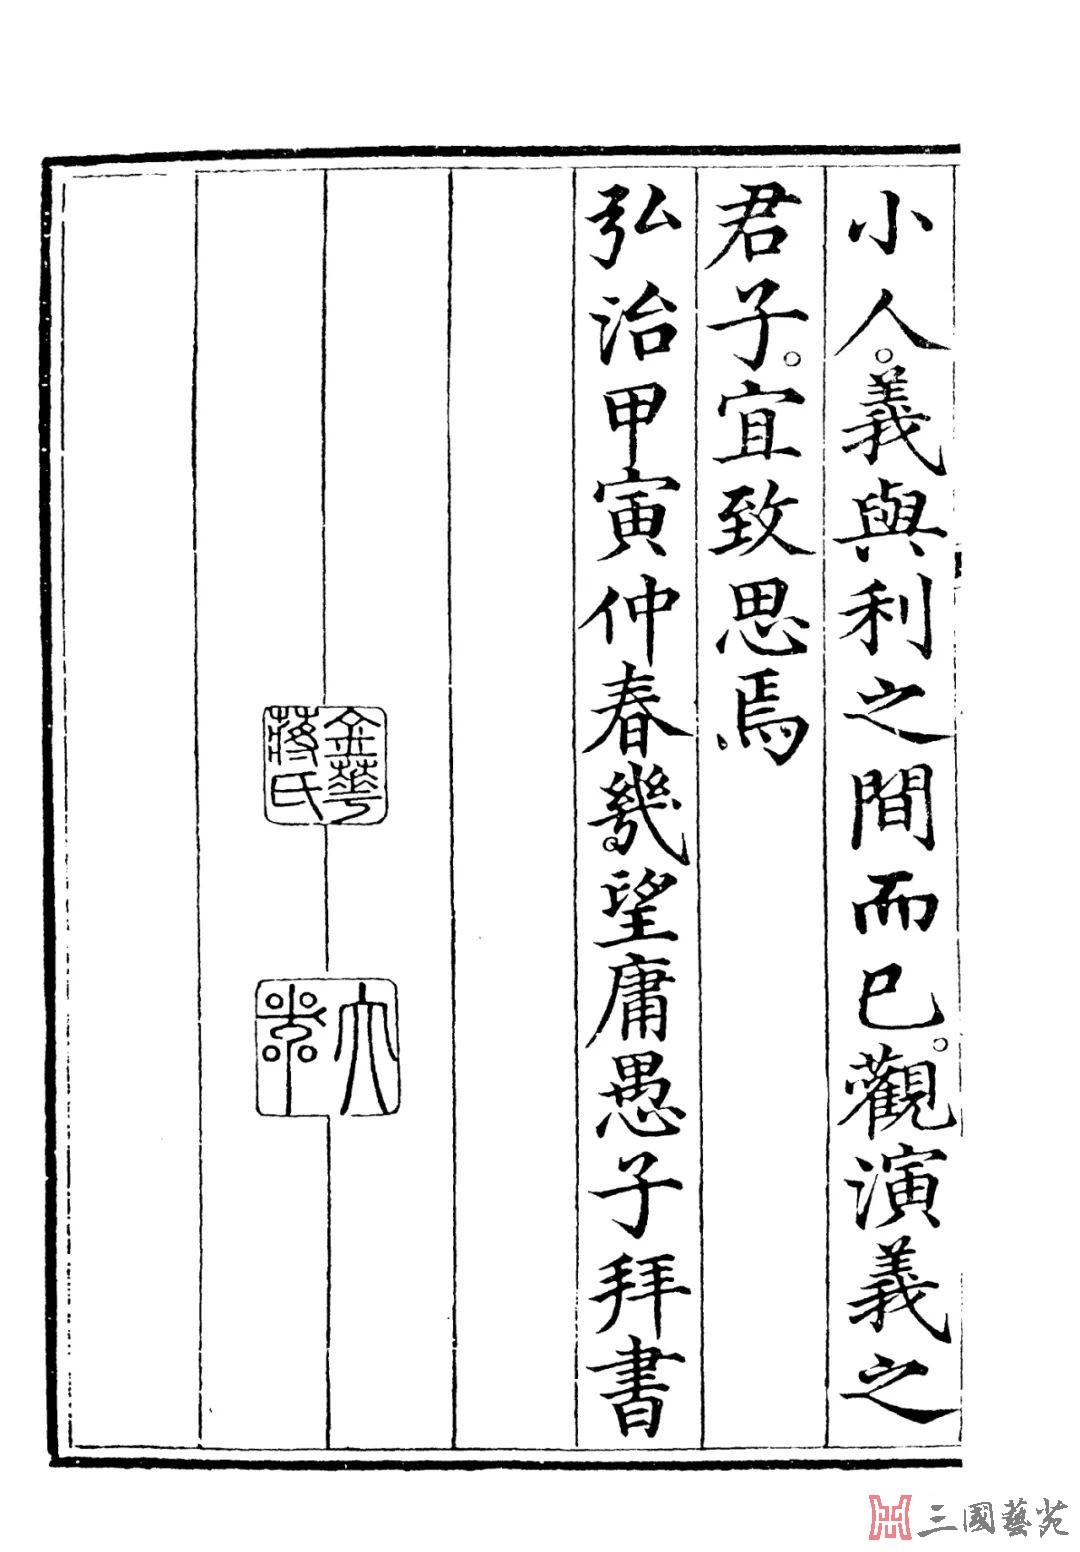 小人。義與利之間而已。觀演義之
君子。宜致思焉
弘治甲寅仲春幾望庸愚子拜書
金華蔣氏
大器
三國藝苑